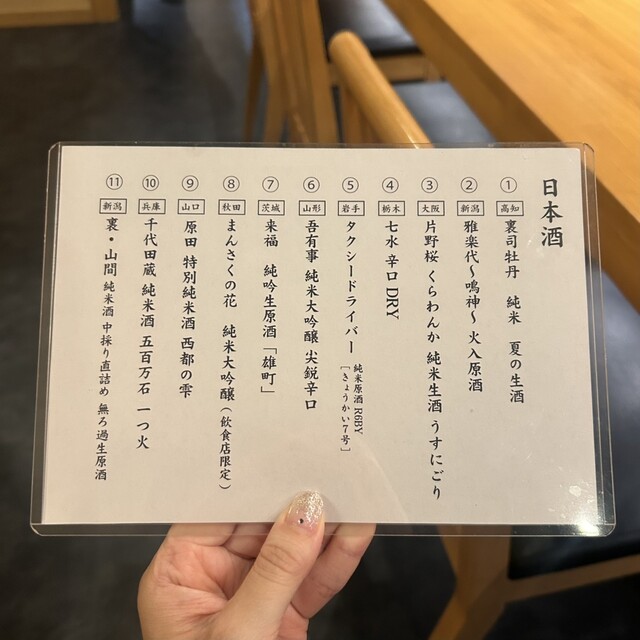 日本酒
① 高知 裏司牡丹 純米 夏の生酒
② 新潟 雅楽代〜鳴神〜 火入原酒
③ 大阪 片野桜 くらわんか 純米生酒 うすにごり
④ 栃木 七水 辛口 DRY
⑤ 岩手 タクシードライバー 純米原酒 R6BY
［きょうかい7号］
⑥ 山形 吾有事 純米大吟醸 尖鋭辛口
⑦ 茨城 来福 純吟生原酒「雄町」
⑧ 秋田 まんさくの花 純米大吟醸（飲食店限定）
⑨ 山口 原田 特別純米酒 西都の雫
⑩ 兵庫 千代田蔵 純米酒 五百万石 一つ火
⑪ 新潟 裏・山間 純米酒 中採り直詰め 無ろ過生原酒